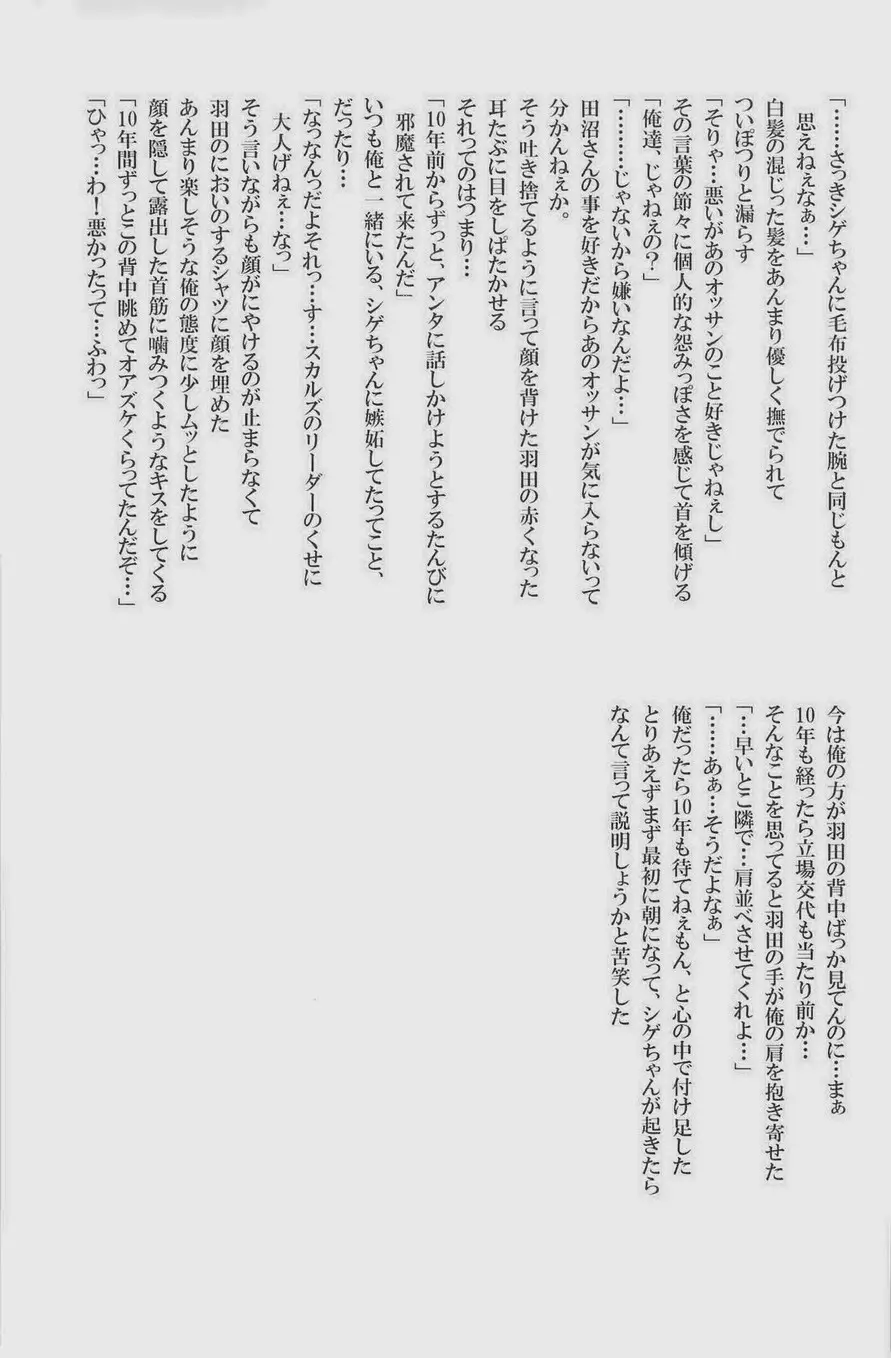 「……さっきシゲちゃんに毛布投げつけた腕と同じもんと
思えねぇなぁ…」
白髪の混じった髪をあんまり優しく撫でられて
ついぽつりと漏らす
「そりゃ…悪いがあのオッサンのこと好きじゃねぇし」
その言葉の節々に個人的な怨みっぽさを感じて首を傾げる
「俺達、じゃねぇの？」
「………じゃないから嫌いなんだよ…」
田沼さんの事を好きだからあのオッサンが気に入らないって
分かんねぇか。
そう吐き捨てるように言って顔を背けた羽田の赤くなった
耳たぶに目をしぱたかせる
それってのはつまり…
「10年前からずっと、アンタに話しかけようとするたんびに
邪魔されて来たんだ」
いつも俺と一緒にいる、シゲちゃんに嫉妬してたってこと、
だったり…
「なっなんっだよそれっ…す…スカルズのリーダーのくせに
大人げねぇ…なっ」
そう言いながらも顔がにやけるのが止まらなくて
羽田のにおいのするシャツに顔を埋めた
あんまり楽しそうな俺の態度に少しムッとしたように
顔を隠して露出した首筋に噛みつくようなキスをしてくる
「10年間ずっとこの背中眺めてオアズケくらってたんだぞ…」
「ひゃっ…わ！悪かったって…ふわっ」
今は俺の方が羽田の背中ばっか見てんのに…まぁ
10年も経ったら立場交代も当たり前か…
そんなことを思ってると羽田の手が俺の肩を抱き寄せた
「…早いとこ隣で…肩並べさせてくれよ…」
「……あぁ…そうだよなぁ」
俺だったら10年も待てねぇもん、と心の中で付け足した
とりあえずまず最初に朝になって、シゲちゃんが起きたら
なんて言って説明しょうかと苦笑した